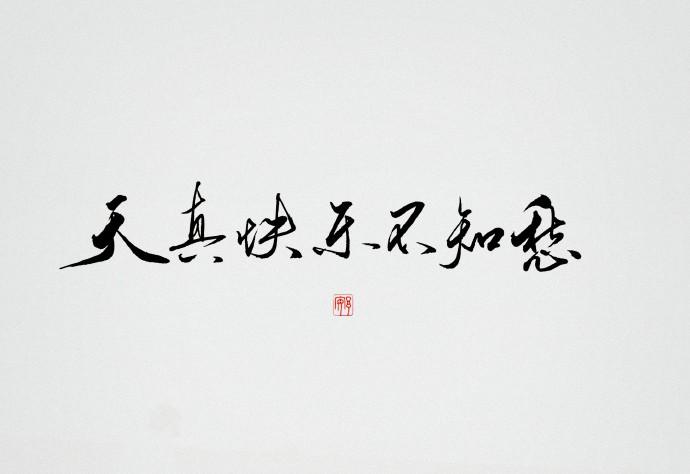 天真快乐不知愁